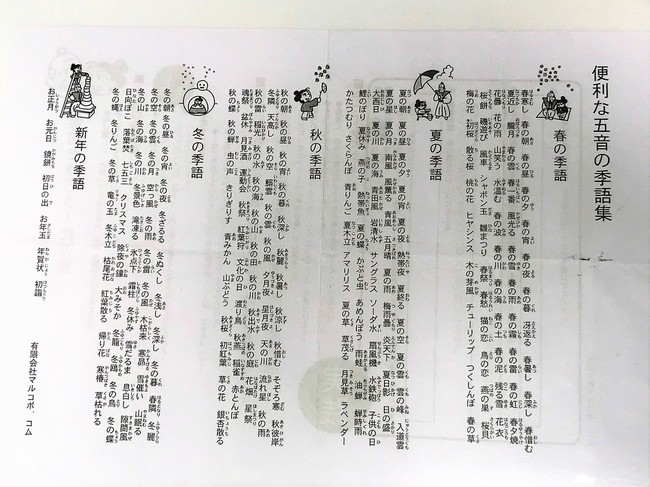 便利な五音の季語集
春の季語
春寒し 春の朝 春の昼 春の夕 春の宵 春の夜 春の暮 冴返る 春暑し 春深し 春惜む
夏近し 朧月 春の雲 春一番 風光る 春の雪 春の雨 春の霜 春の雷 春の虹 春夕焼
花曇 花の雨 山笑う 水温む 春の波 春の川 春の海 春の土 春の泥 残る雪 花衣
桜餅 磯遊び 風車 シャボン玉 雛まつり 春祭 春愁 猫の恋 鳥の恋 燕の巣 桜貝
梅の花 初桜 散る桜 桃の花 ヒヤシンス 木の芽風 チューリップ つくしんぼ 春の草
夏の季語
夏の朝 夏の昼 夏の夕 夏の宵 夏の夜 熱帯夜 夏終る 夏の空 夏の雲 雲の峰 入道雲
夏の星 夏の月 南風 風薫る 青嵐 五月晴 夏の雨 梅雨曇 炎天下 夏日影 日の盛
大西日 夏の川 夏の海 青田風 岩清水 サングラス ソーダ水 扇風機 水鉄砲 子供の日
鯉のぼり 夏休み 燕の子 熱帯魚 夏の蝶 かぶと虫 あめんぼう 雨蛙 油蝉 蝉時雨
かたつむり さくらんぼ 青りんご 夏木立 アマリリス 夏の草 草茂る 月見草 ラベンダー
秋の季語
秋の朝 秋の昼 秋の宵 秋の暮 秋深し 秋麗 秋暑し 秋涼し 秋惜む そぞろ寒 秋彼岸
冬隣 天高し 秋の空 鰯雲 秋の雲 秋の風 夕月夜 星月夜 天の川 流れ星 秋の雨
秋の雷 稲光 秋の水 秋の海 秋の山 秋の田 秋の川 秋出水 秋の庭 花畑 星祭
魂祭 盆休 月見酒 運動会 秋祭 紅葉狩 文化の日 渡り鳥 秋燕 稲雀 赤とんぼ
秋の蝶 秋の蝉 虫の声 きりぎりす 青みかん 山ぶどう 秋桜 初紅葉 草の花 銀杏散る
冬の季語
冬の朝 冬の昼 冬の宵 冬の夜 冬ざるる 冬ぬくし 冬浅し 冬深し 冬の暮 春隣 冬麗
冬の空 冬の雲 冬の月 空っ風 冬の雨 冬の雷 冬の風 木枯来 寒昴 雪催 山眠る
冬の山 冬の海 冬の川 冬景色 滝凍る 氷点下 霜柱 冬休み 雪だるま 息白し 隙間風
日向ぼこ 落葉焚 七五三 クリスマス 除夜の鐘 大みそか 冬籠 冬鴎 冬の鳥 冬の蝶
冬の蠅 冬りんご 冬の草 竜の玉 冬木立 枯尾花 紅葉散る 帰り花 寒椿 草枯れる
新年の季語
お正月 お元日 鏡餅 初日の出 お年玉 年賀状 初詣
有限会社マルコボ．コム